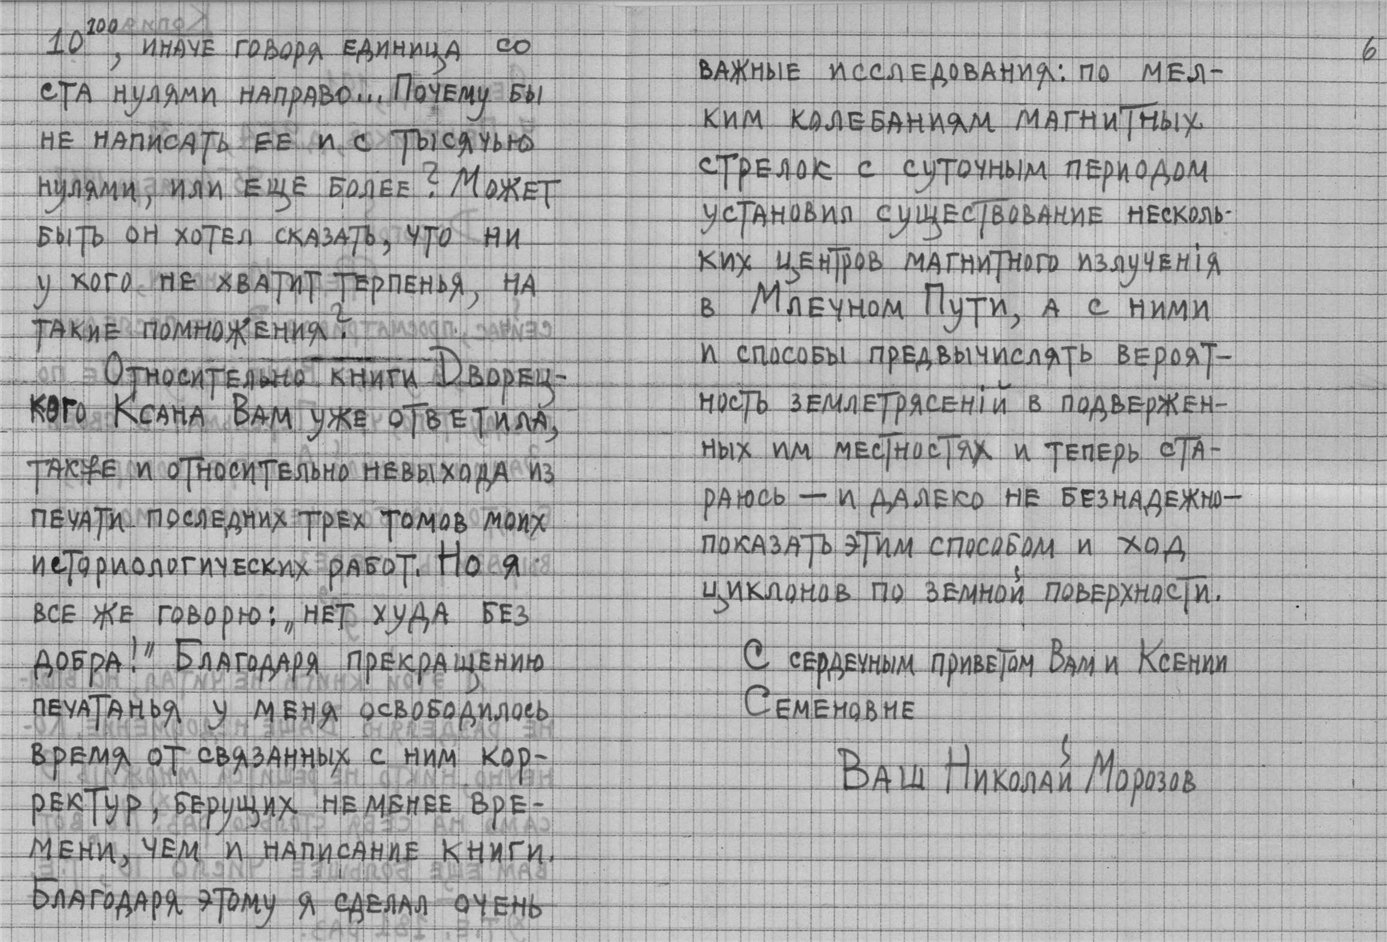 10¹⁰⁰, иначе говоря единица со
ста нулями направо... Почему бы
не написать ее и с тысячью
нулями, или еще более? Может
быть он хотел сказать, что ни
у кого не хватит терпенья, на
такие помножения?
Относительно книги Дворец-
кого Ксана Вам уже ответила,
также и относительно невыхода из
печати последних трех томов моих
историологических работ. Но я
все же говорю: „нет худа без
добра!" Благодаря прекращению
печатанья у меня освободилось
время от связанных с ним кор-
ректур, берущих не менее вре-
мени, чем и написание книги.
Благодаря этому я сделал очень
6
важные исследования: по мел-
ким колебаниям магнитных
стрелок с суточным периодом
установил существование несколь-
ких центров магнитного излученія
в Млечном Пути, а с ними
и способы предвычислять вероят-
ность землетрясеній в подвержен-
ных им местностях и теперь ста-
раюсь — и далеко не безнадежно —
показать этим способом и ход
циклонов по земной поверхности.
С сердечным приветом Вам и Ксении
Семеновне
Ваш Николай Морозов